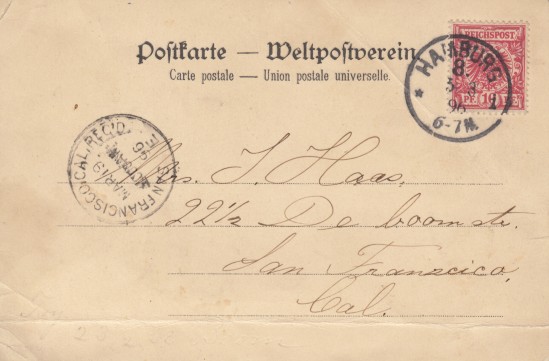 Postkarte — Weltpostverein
Carte postale — Union postale universelle.
REICHSPOST
PF 10 PF
HAMBURG
8.
96
6-7N.
* 1
SAN FRANCISCO, CAL. REC'D.
MAR 19
96
Mrs. J. Haas,
22½ De boom str.
San Franzcico,
Cal.